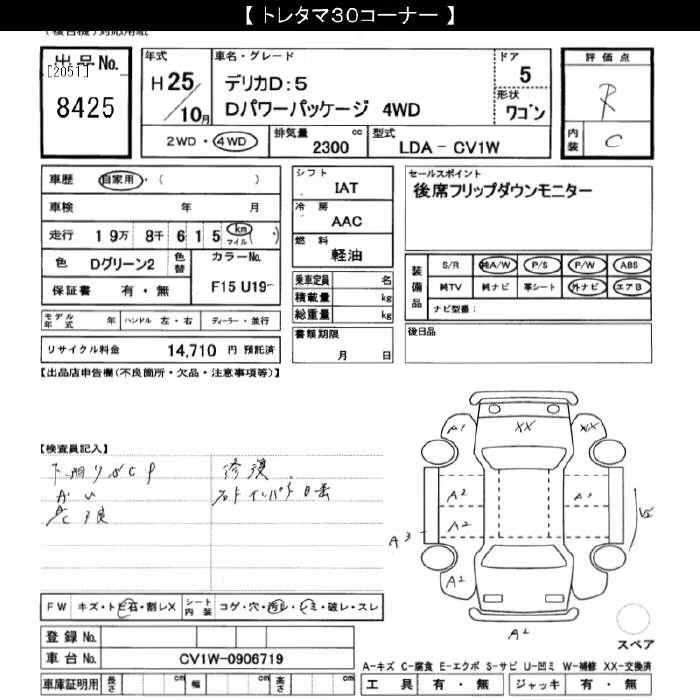 【 トレタマ30コーナー 】
出品No.
[2051]
8425
年式
H 25/10月
車名・グレード
デリカD:5
Dパワーパッケージ 4WD
ドア
5
形状
ワゴン
2WD・4WD
排気量 2300 cc
型式 LDA - CV1W
評価点
R
内装
C
車歴 自家用・( )
車検 年 月
走行 19万 8千 6 1 5 km マイル ( )
色 Dグリーン2
色替
カラーNo.
F15 U19
保証書 有・無
モデル年式 年
ハンドル 左・右
ディーラー・並行
リサイクル料金 14,710 円 預託済
シフト
IAT
冷房
AAC
燃料
軽油
乗車定員 名
積載量 kg
総重量 kg
書類期限
月 日
セールスポイント
後席フリップダウンモニター
装備品
S/R 純A/W P/S P/W ABS
純TV 純ナビ 革シート 外ナビ エアB
ナビ型番:
後日品
【出品店申告欄(不良箇所・欠品・注意事項等)】
【検査員記入】
修復
FW キズ・トビ石・割レX
シート内装 コゲ・穴・汚レ・シミ・破レ・スレ
登録No.
車台No. CV1W-0906719
車庫証明用 長さ cm 幅 cm 高さ cm
A1 XX XX
A2 A1
A2
A3
A2
A2
スペア
A-キズ C-腐食 E-エクボ S-サビ U-凹ミ W-補修 XX-交換済
工具 有・無 ジャッキ 有・無